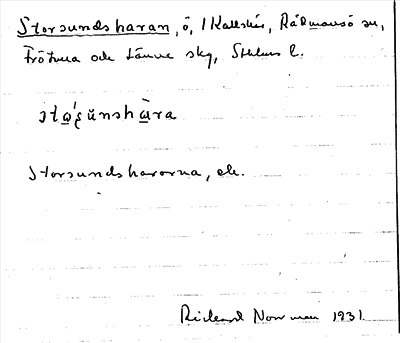 Storsundsharan, ö, i Kallskär, Rådmansö sn,
Frötuna och Länna skg, Sthlms l.
stώ̨ršŭnshàra
Storsundshararna, ok.
Rickard Norrman 1931.